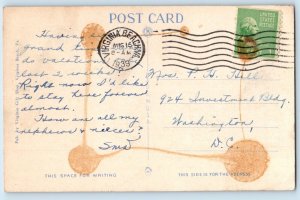 POST CARD
VIRGINIA BEACH, VA.
AUG 15
8-AM
1939
Having a
grand time
on vacation
last 2 weeks.
Right now I'd like
to stay here forever
almost.
How are all my
nephews & nieces?
Sma
Mrs. P. H. Hill
924 Investment Bldg.
Washington,
D.C.
THIS SPACE FOR WRITING
THIS SIDE IS FOR THE ADDRESS